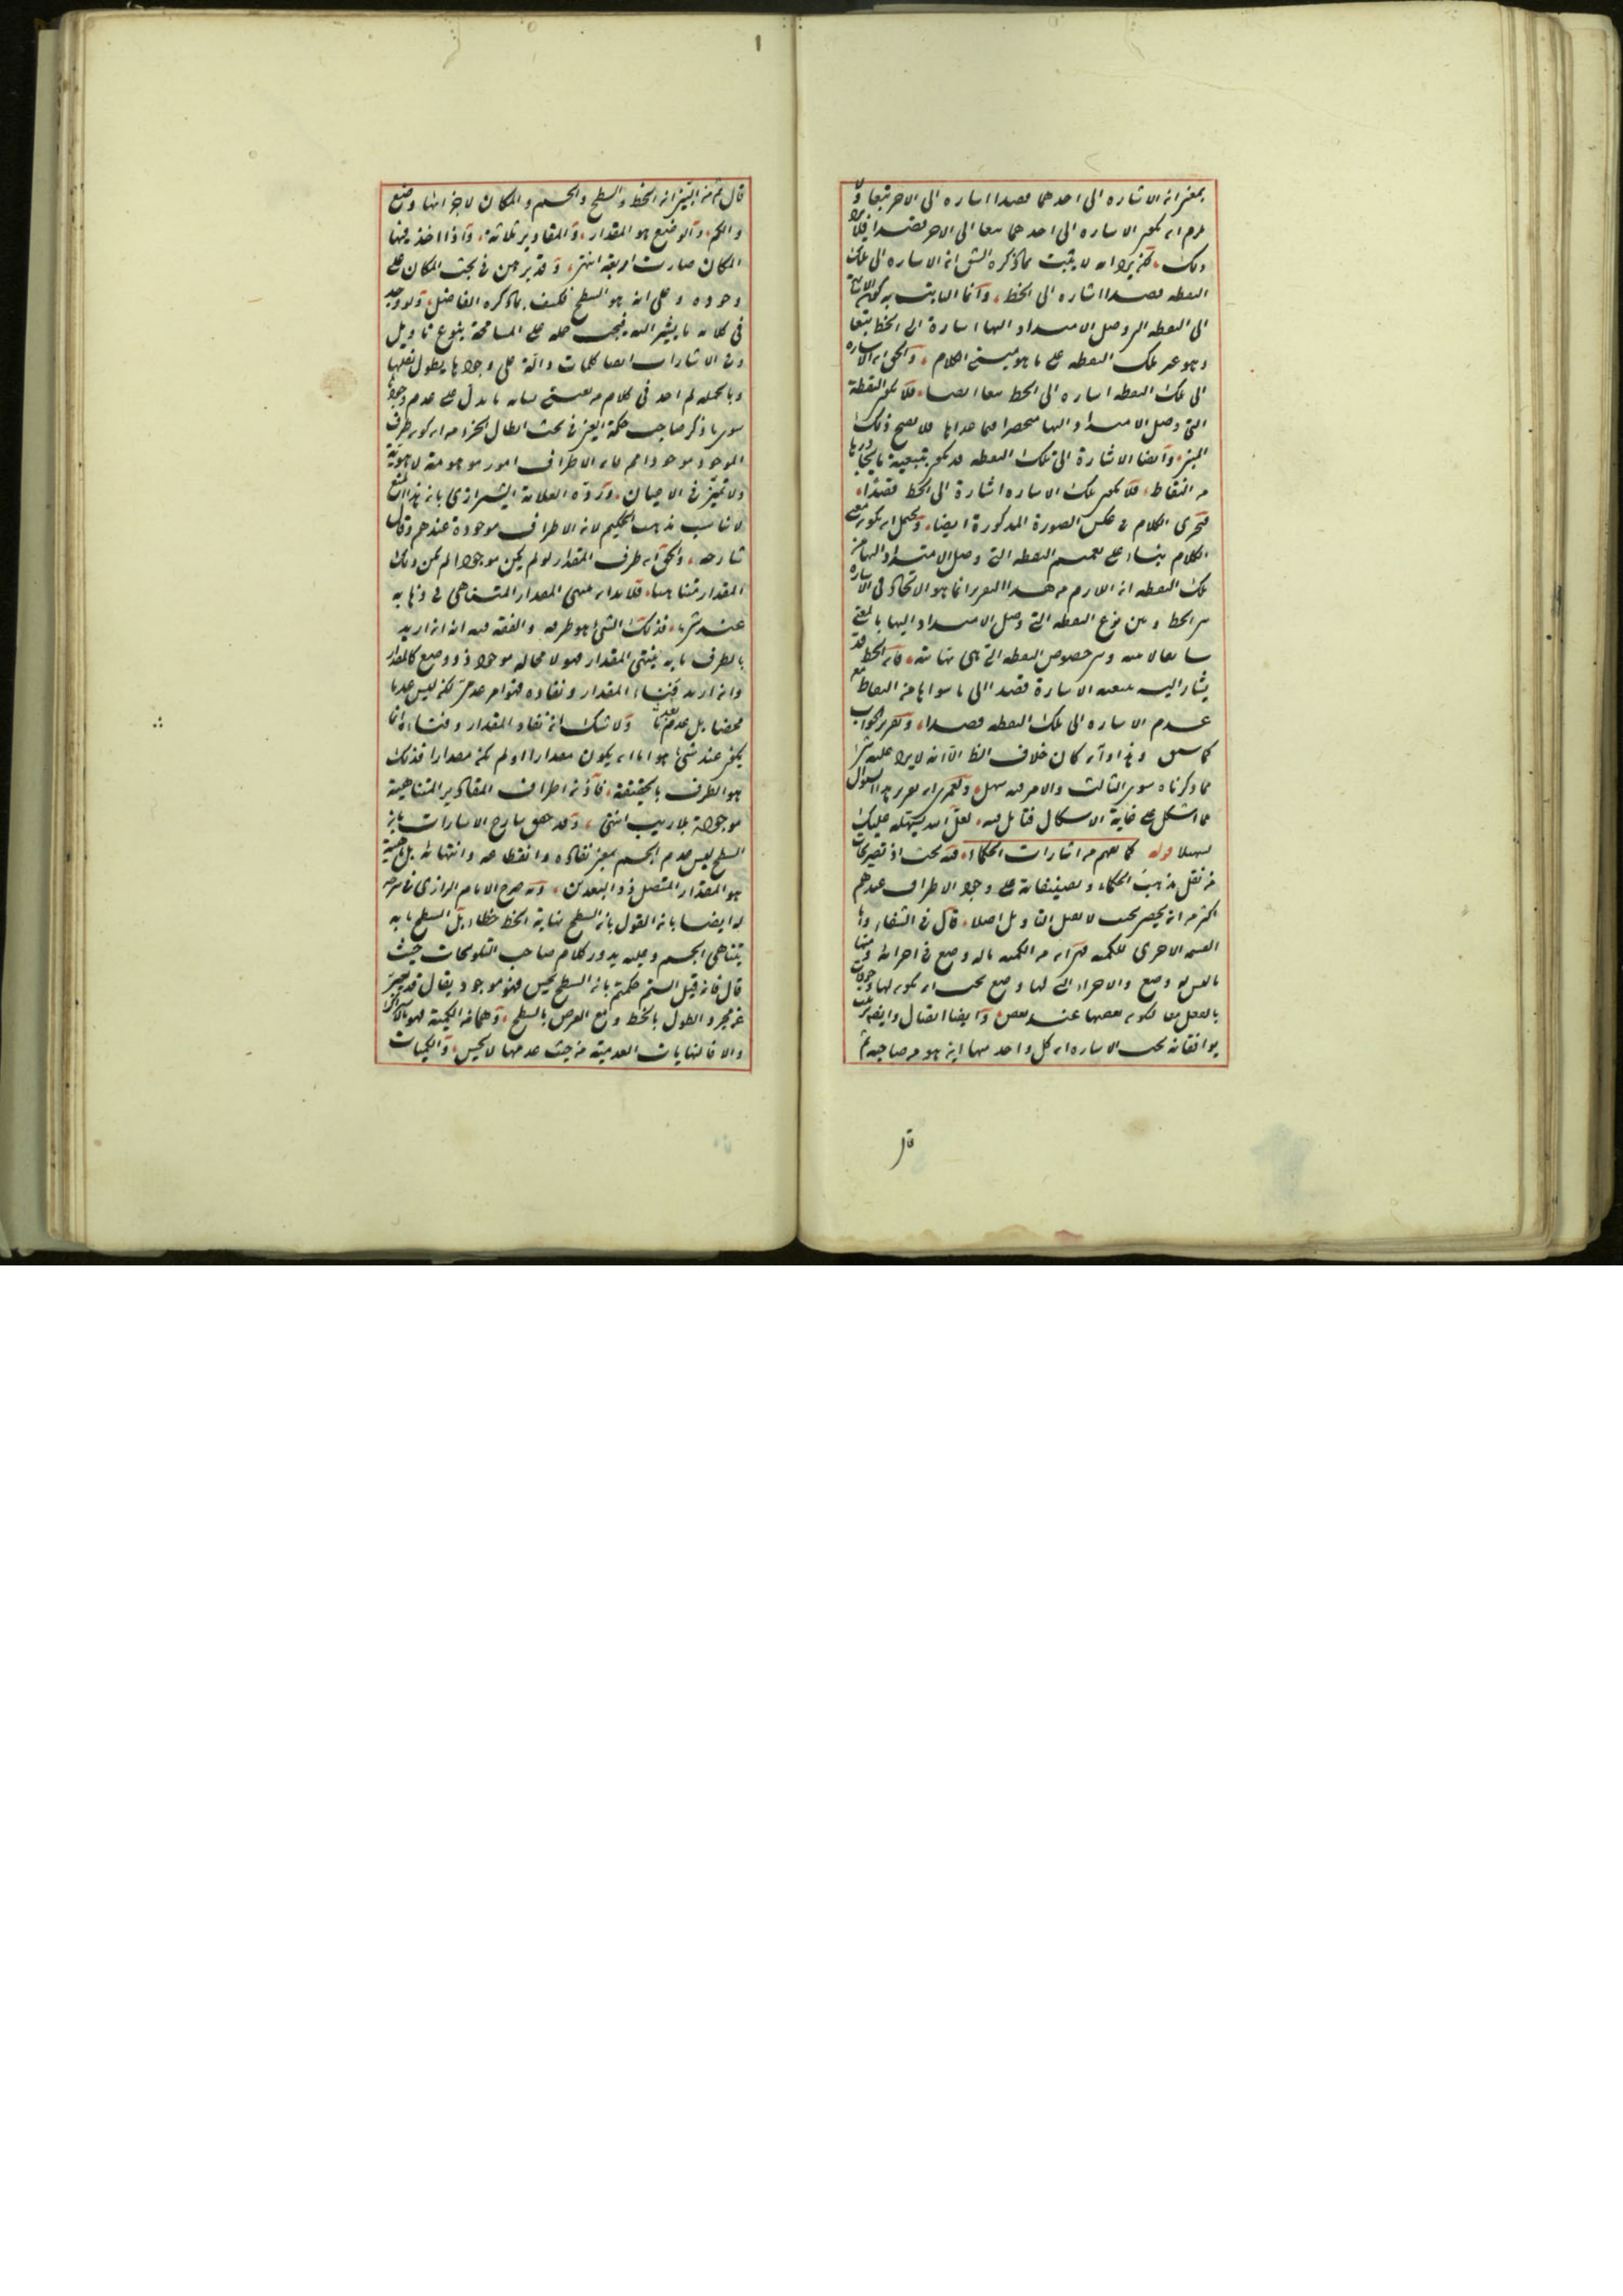 بمعنى ان الاشاره الى احدهما قصدا اساره الى الاخر تبعا ولا
يلزم ان يكون الاساره الى احدهما تبعا الى الاخر قصدا فلا يرد
ذلك لكن يرد انه لا يثبت بما ذكره الش ان الاساره الى تلك
النقطه قصدا اشاره الى الخط وانما الثابت به كون الاشارة
الى النقطه التى وصل الامتداد اليها اسارة الى الخط تبعا
وهو غير تلك النقطه على ما هو مبنى الكلام والحق ان الاساره
الى تلك النقطه اساره الى الخط تبعا ايضا فلا يكون النقطة
التى وصل الامتداد اليها منحصرا فيما عداها فلا يصح ذلك
وايضا الاشارة الى تلك النقطه قد يكون بتبعية ما يجاورها
من النقاط فلا يكون تلك الاساره اشارة الى الخط قصدا
فتحرى الكلام فى عكس الصورة المذكورة ايضا ويحتمل ان يكون معنى
الكلام بناء على تعميم النقطه التى وصل الامتداد اليها من
تلك النقطه ان اللازم من هذا التقرير انما هو الاتحاد فى الاساره
بين الخط وبين نوع النقطه التى وصل الامتداد اليها بالمعنى
وبين خصوص النقطه التى هى نهايته فان الخط قد
يشار اليه بتبعية الاسارة قصدا الى ما سواها من النقاط مع
عدم الاساره الى تلك النقطه قصدا وتقرير الجواب
كما سبق وهذا وان كان خلاف الظ الا انه لا يرد عليه شئ
مما ذكرناه سوى الثالث والامر فيه سهل ولعمرى ان تقرير هذا السوال
مما اشكل على غاية الاشكال فتأمل فيه لعل الله يسهله عليك
تسهيلا قوله كما يفهم من اشارات الحكماء فيه بحث اذ تصريحات
من نقل مذهب الحكماء وتصنيفاته على وجود الاطراف عندهم
اكثر من ان يحصر بحيث لا يقبل التاويل اصلا قال فى الشفاء واما
القسمه الاخرى للكميه فهى ان من الكميه ما له وضع فى اجزائه ومنها
ما ليس له وضع والاجزاء التى لها وضع يجب ان يكون لها وجود
بالفعل معا ليكون بعضها عند بعض وايضا اتصال وايضا ترتيب
يوافقانه بحيث الاساره ان كل واحد منها اين هو من صاحبه ثم
قال
قال ثم من البين ان الخط والسطح والجسم والمكان لاجزائها وضع
والكم ذو الوضع هو المقدار والمقادير ثلاثة واذا اخذ فيها
المكان صارت اربعة انتهى وقد برهن فى بحث المكان على
وجوده وعلى انه هو السطح فكيف ما ذكره الفاضل ولو وجد
فى كلامه ما يشير اليه فيجب حمله على المسامحة بنوع تاويل
وفى الاشارات ايضا كلمات دالة على وجودها يطول نقلها
وبالجمله لم اجد فى كلام من يعتنى بشانه ما يدل على عدم وجودها
سوى ما ذكر صاحب حكمة العين فى بحث ابطال الجزء من ان كون طرف
الموجود موجودا مم لان الاطراف امور موهومة لا هوية
ولا تميز فى الاعيان ورده العلامة الشيرازى بان هذا المنع
لا يناسب مذهب الحكيم لان الاطراف موجودة عندهم وقال
شارحه والحق ان طرف المقدار لو لم يكن موجودا لم يكن ذلك
المقدار متناهيا فلا بد ان ينتهى المقدار المتناهى فى ذهابه
عند شئ ما فذلك الشئ هو طرفه والفقه فيه انه ان اريد
بالطرف ما به ينتهى المقدار فهو لا محاله موجود ذو وضع كالمقدار
وان اريد فناء المقدار ونفاده فهو امر عدمى لكنه ليس عدما
محضا بل عدم بعدما ولا شك ان نفاد المقدار وفناءه انما
يكون عند شئ هو اما ان يكون مقدارا او لم يكن مقدارا فذلك
هو الطرف بالحقيقة فاذن اطراف المقادير المتناهية
موجودة بلا ريب انتهى وقد حقق شارح الاشارات بان
السطح ليس عدم الجسم بمعنى نفاده وانقطاعه وانتهائه بل حقيقته
هو المقدار المتصل ذو البعدين وقد صرح الامام الرازى فى شرحه
له ايضا بان القول بان السطح نهاية الخط خطاء بل السطح ما به
يتناهى الجسم وعليه يدور كلام صاحب التلويحات حيث
قال فان قيل الستم حكمتم بان السطح يحس فهو موجود يقال قد
عن مجرد الطول بالخط ومع العرض بالسطح وهما من الكمية
والا فالنهايات العدمية من حيث عدمها لا تحس والكميات